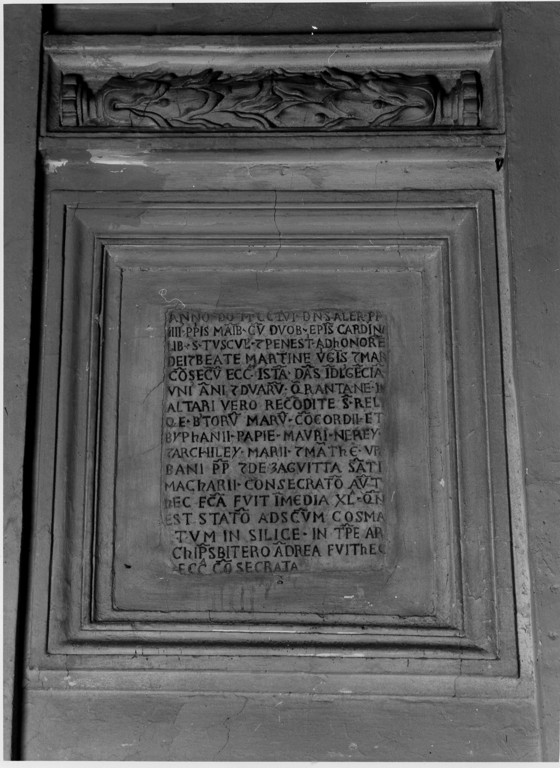 ANNO·DO M CCLVI·DNS ALER PP
IIII·PPIS MAIB·CV DVOB·EPIS CARDIN
LIB·S·TVSCVL·7 PENEST·ADhONORE
DEI 7 BEATE MARTINE VGIS 7 MAR
COSECV ECC ISTA·DAS IDLGECIA
VNI ANI 7 DVARV·QRANTANE·I
ALTARI VERO RECODITE S·REL
QE·BTORV MARV·COCORDII·ET
EPYPHANII·PAPIE·MAVRI·NEREY·
7 ARCHILEY·MARII·7 MATHE·VR
BANI PP 7 DE 3AGVITTA SATI
MACHARII·CONSECRATO AVT
hEC ECA FVIT IMEDIA XL·QN
EST STATO ADSCVM COSMA
TVM IN SILICE·IN TPE AR
ChIPSBITERO ADREA FVIT hEC
ECC COSECRATA